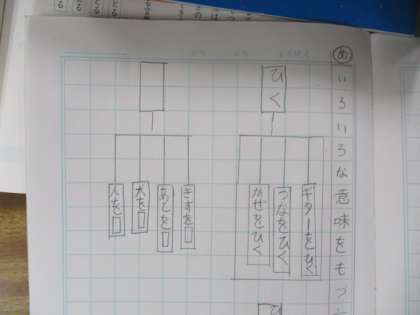 め いろいろな意味をもつ
ひく
ギターをひく
つなをひく
かぜをひく
きずを
あとを
犬を
人を